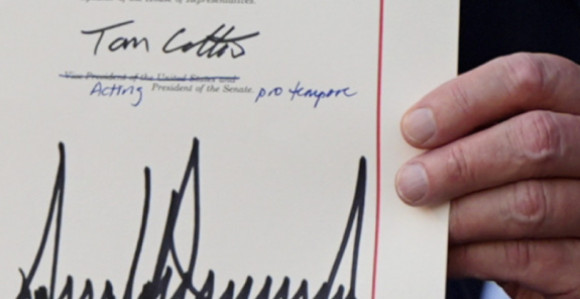 Speaker of the House of Representatives.
Tom Cotton
Vice President of the United States and
Acting President of the Senate. pro tempore